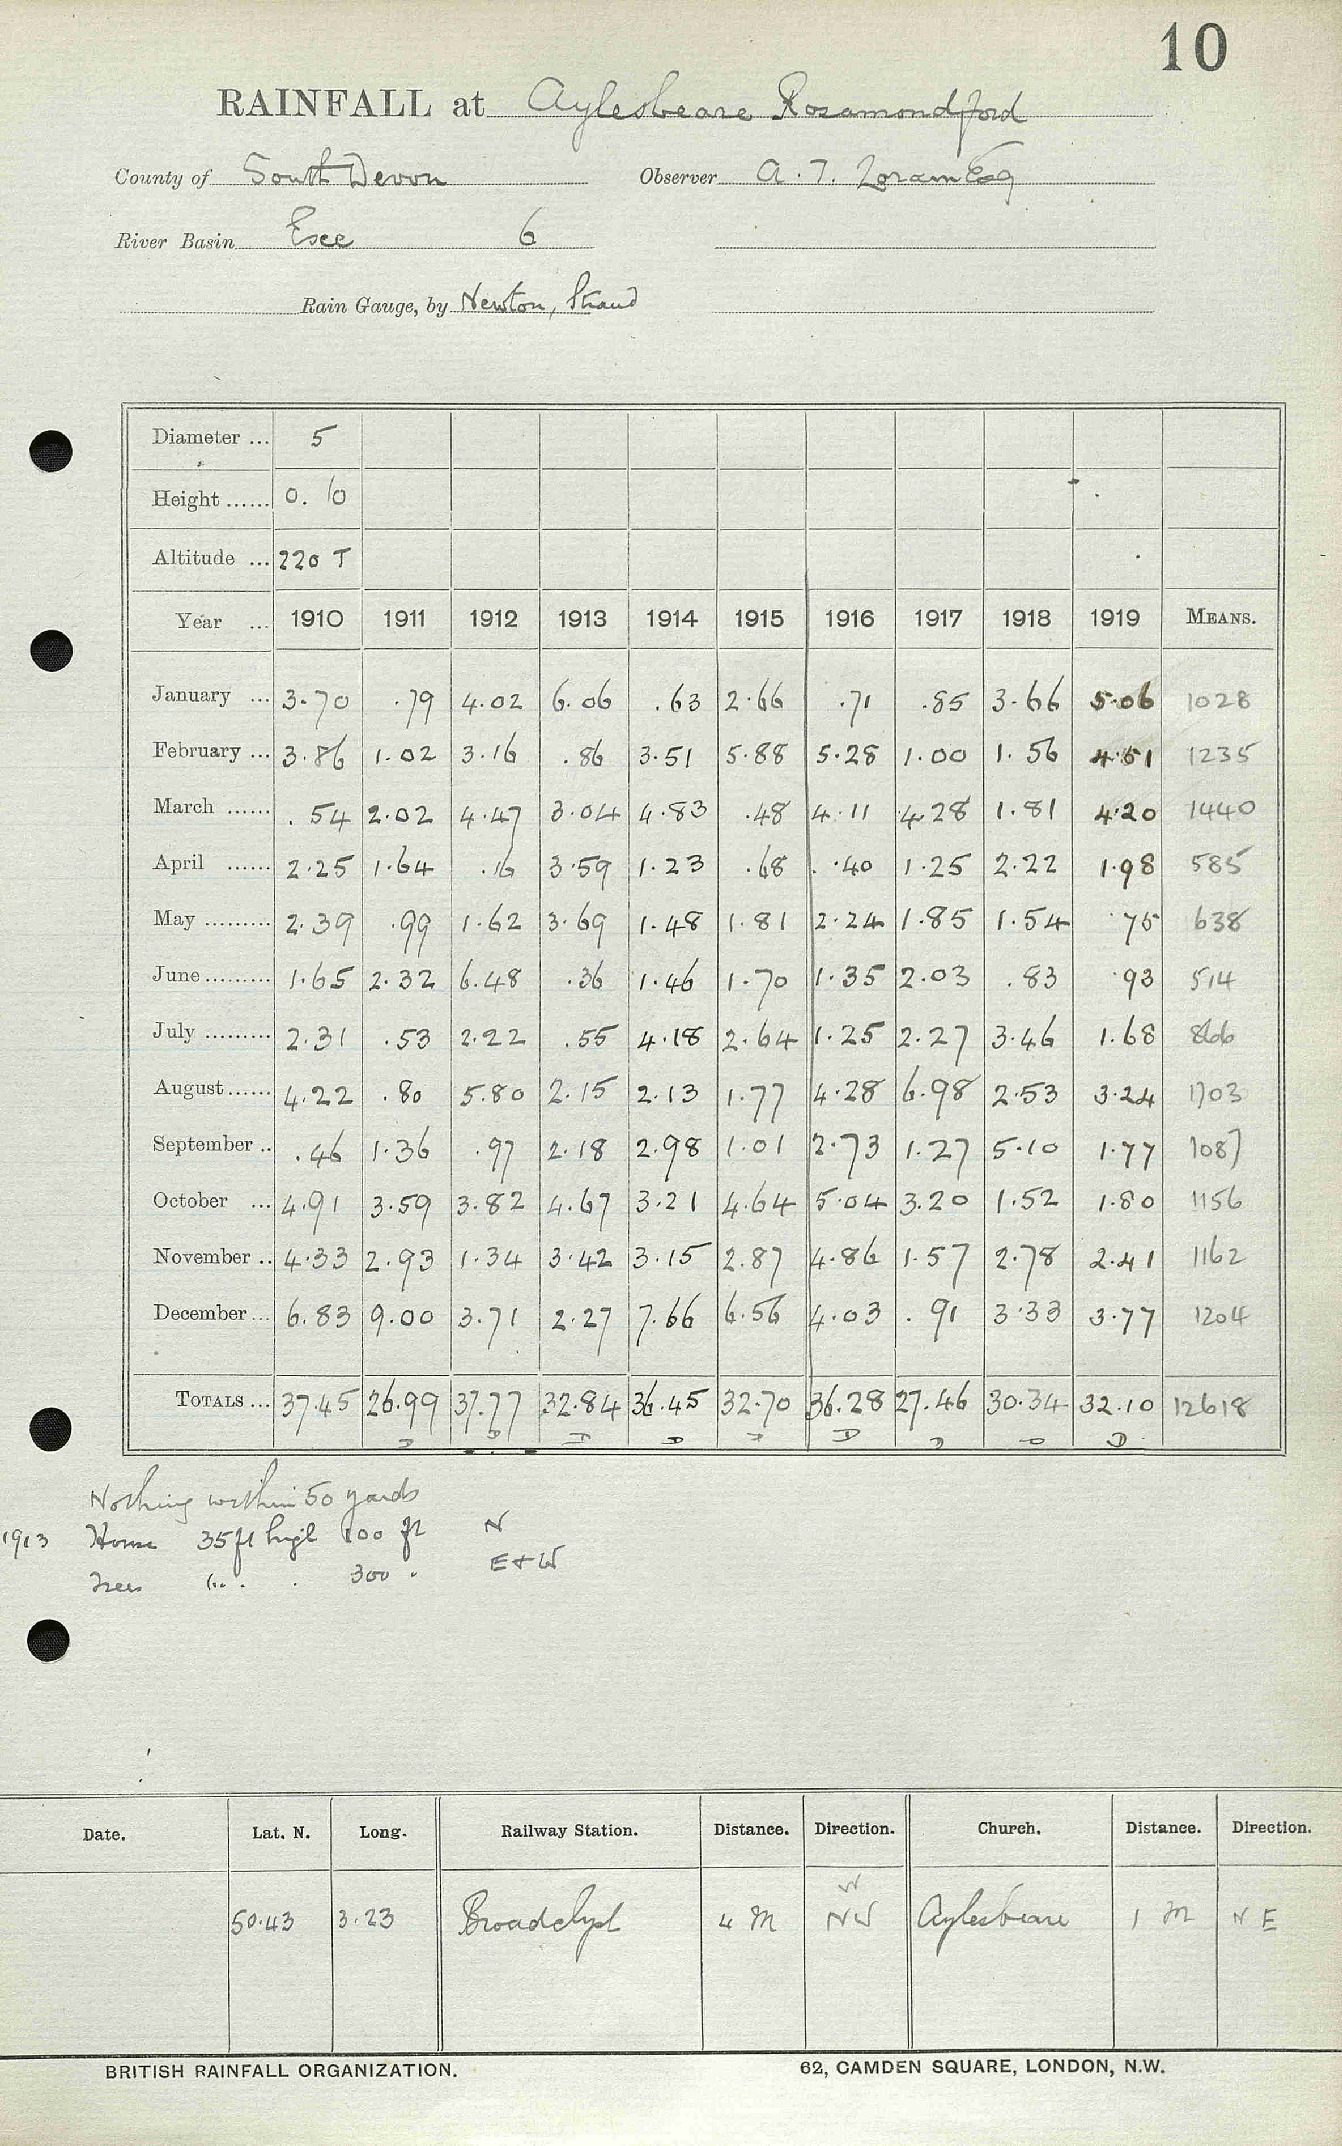 10
RAINFALL at Aylesbeare Rosamondford
County of South Devon Observer A. T. Loram Esq
River Basin Exe 6
Rain Gauge, by Newton, Strand
Diameter ... 5
Height ...... 0. 10
Altitude ... 220 T
Year ... 1910 1911 1912 1913 1914 1915 1916 1917 1918 1919 MEANS.
January ... 3.70 .79 4.02 6.06 .63 2.66 .71 .85 3.66 5.06 1028
February ... 3.86 1.02 3.16 .86 3.51 5.88 5.28 1.00 1.56 4.51 1235
March ...... .54 2.02 4.47 3.04 4.83 .48 4.11 4.28 1.81 4.20 1440
April ...... 2.25 1.64 .16 3.59 1.23 .68 .40 1.25 2.22 1.98 585
May ......... 2.39 .99 1.62 3.69 1.48 1.81 2.24 1.85 1.54 .75 638
June ......... 1.65 2.32 6.48 .36 1.46 1.70 1.35 2.03 .83 .93 514
July ......... 2.31 .53 2.22 .55 4.18 2.64 1.25 2.27 3.46 1.68 866
August ...... 4.22 .80 5.80 2.15 2.13 1.77 4.28 6.98 2.53 3.24 1703
September .. .46 1.36 .97 2.18 2.98 1.01 2.73 1.27 5.10 1.77 1087
October ... 4.91 3.59 3.82 4.67 3.21 4.64 5.04 3.20 1.52 1.80 1156
November .. 4.33 2.93 1.34 3.42 3.15 2.87 4.86 1.57 2.78 2.41 1162
December ... 6.83 9.00 3.71 2.27 7.66 6.56 4.03 .91 3.33 3.77 1204
TOTALS ... 37.45 26.99 37.77 32.84 36.45 32.70 36.28 27.46 30.34 32.10 12618
D D D D D D D D D
Nothing within 50 yards
1913 House 35 ft high 100 ft N
Trees " . . 300 " E + W
Date. Lat. N. Long. Railway Station. Distance. Direction. Church. Distance. Direction.
W
50.43 3.23 Broadclyst 4 M NW Aylesbeare 1 M N E
BRITISH RAINFALL ORGANIZATION. 62, CAMDEN SQUARE, LONDON, N.W.